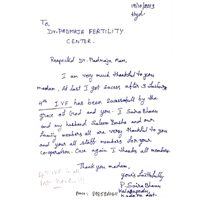 19/10/2023
Hyd
To,
Dr. PADMAJA FERTILITY
CENTER.
Respected Dr. Padmaja Mam,
I am very much thankful to you
madam. At last I got Sucess after 3 failures
4th IVF has been Sucessfull by the
grace of God and you. I Saira Bhanu
and my husband Saleem Basha and our
family members all are very thankful to you
and your all staff members for your
co-operation. Once again I thanks all members.
Thank you madam,
yours faithfully
P. Saira Bhanu